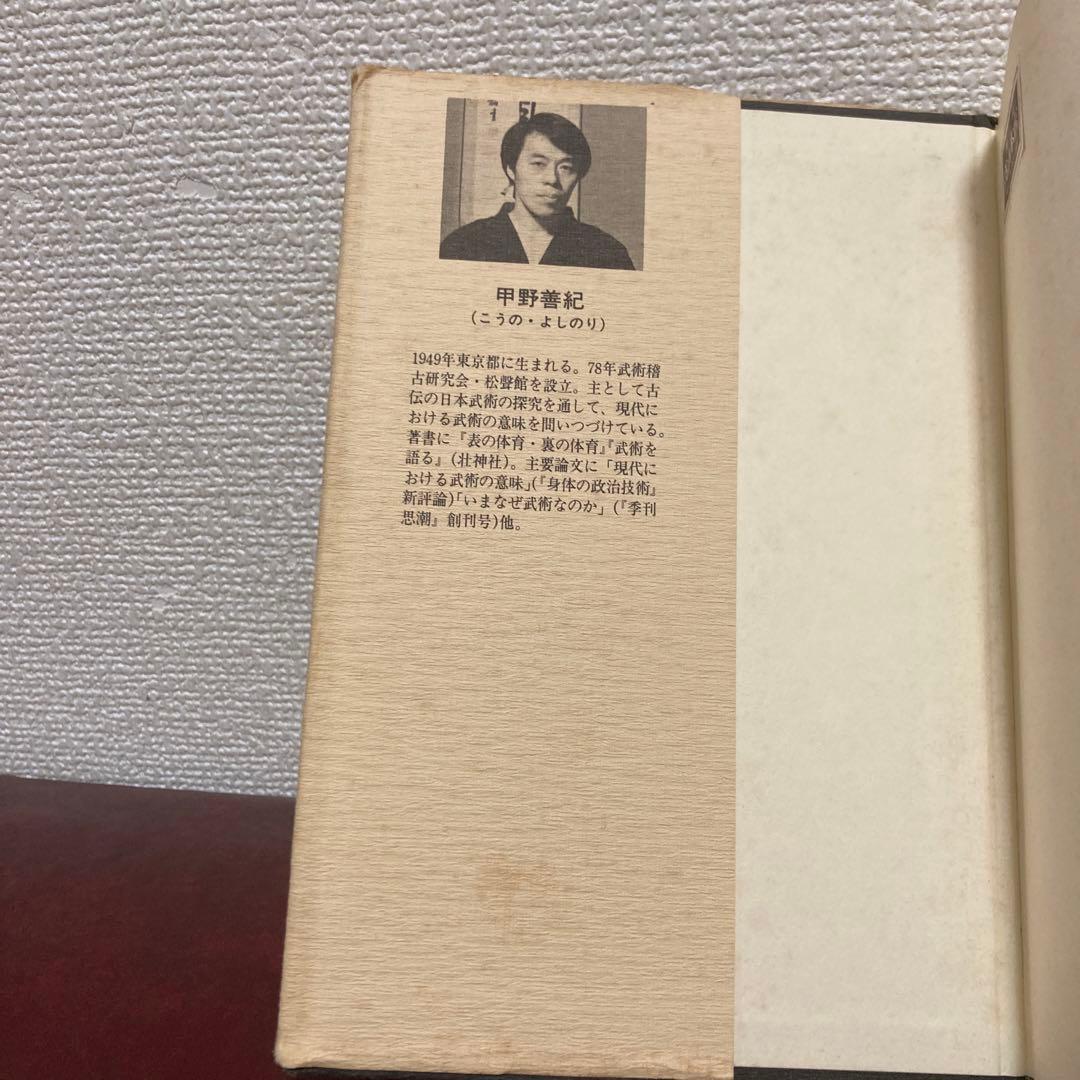 甲野善紀
(こうの・よしのり)
1949年東京都に生まれる。78年武術稽
古研究会・松聲館を設立。主として古
伝の日本武術の探究を通して、現代に
おける武術の意味を問いつづけている。
著書に『表の体育・裏の体育』『武術を
語る』(壮神社)。主要論文に「現代に
おける武術の意味」(『身体の政治技術』
新評論)「いまなぜ武術なのか」(『季刊
思潮』創刊号)他。